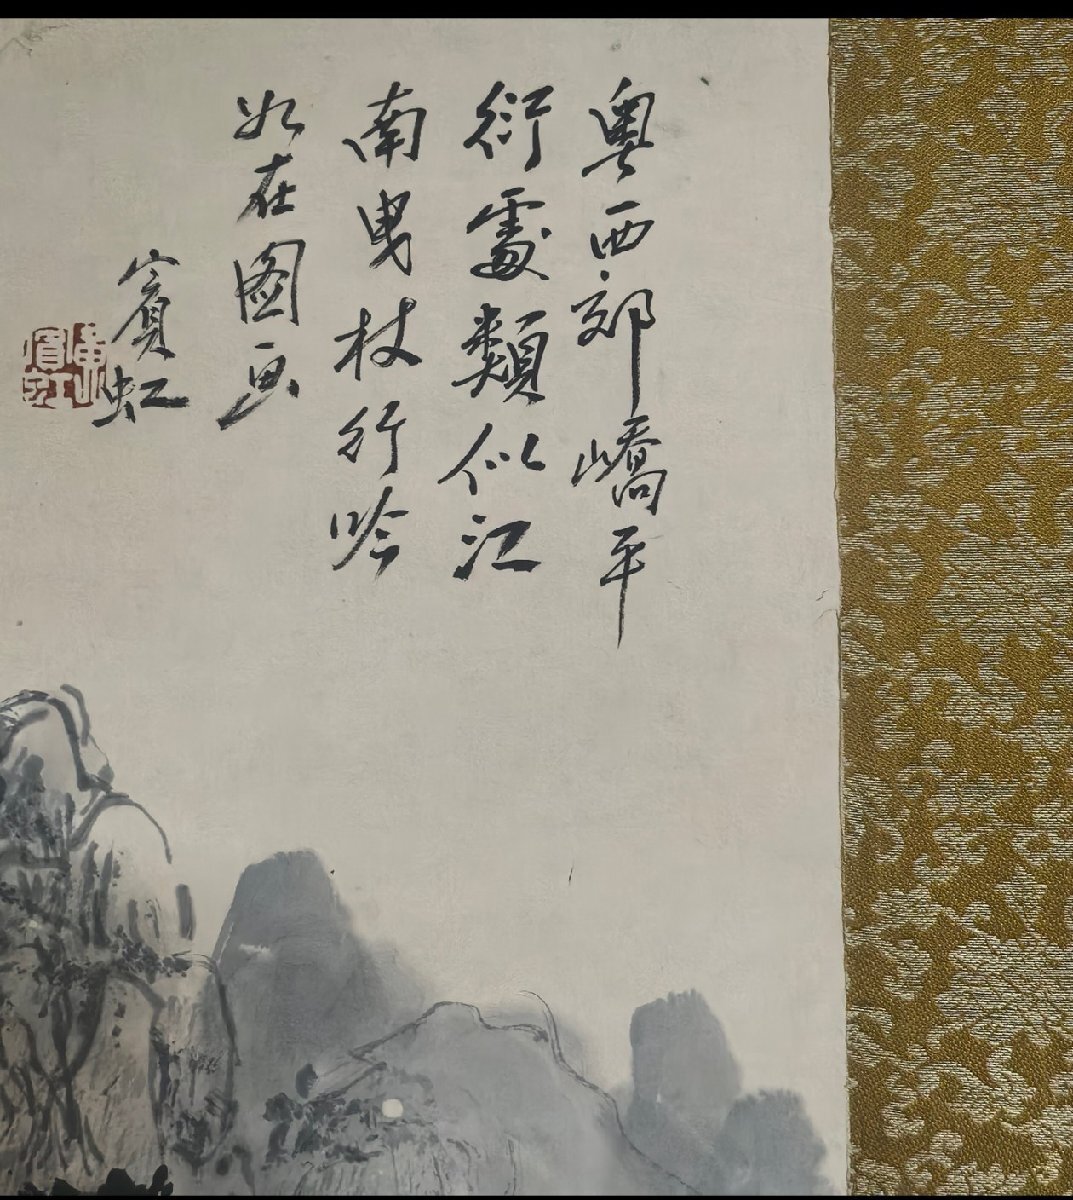 粤西郊嶠平
衍處類似江
南曳杖行吟
如在圖画
賓虹
黃賓虹